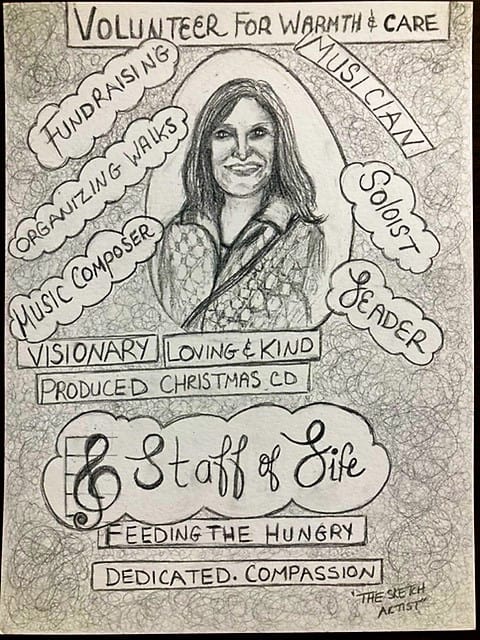 VOLUNTEER FOR WARMTH & CARE
FUNDRAISING
MUSICIAN
ORGANIZING WALKS
SOLOIST
MUSIC COMPOSER
LEADER
VISIONARY
LOVING & KIND
PRODUCED CHRISTMAS CD
Staff of Life
FEEDING THE HUNGRY
DEDICATED. COMPASSION
"THE SKETCH
ARTIST"